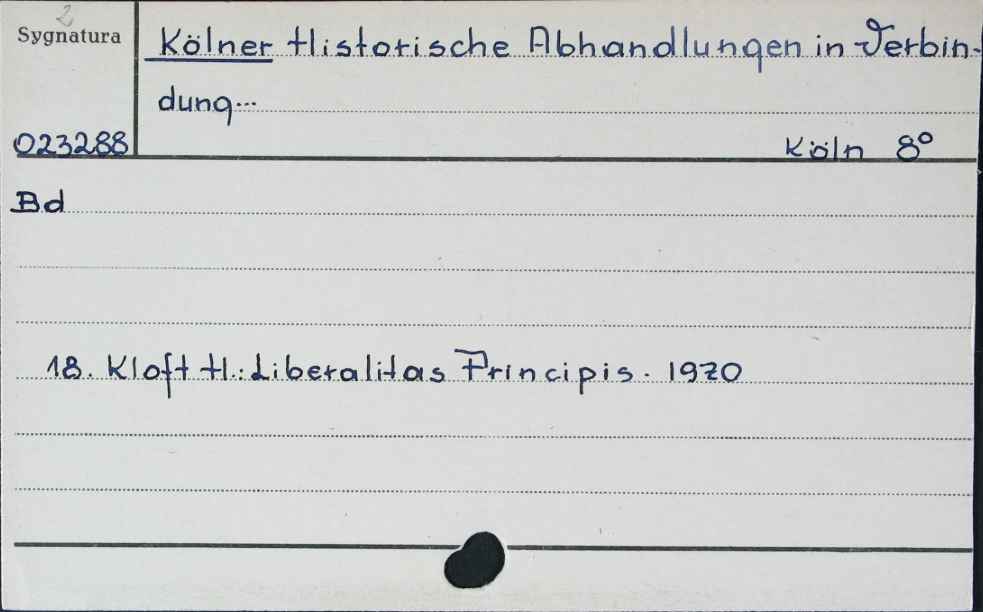 2
Sygnatura
Kölner Historische Abhandlungen in Verbin-
dung...
023288
Köln 8°
Bd
18. Kloft H.: Liberalitas Principis. 1970